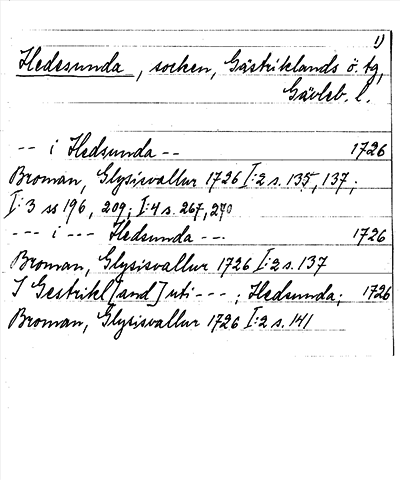 1)
Hedesunda, socken, Gästriklands ö. tg,
Gävleb. l.
-- i Hedsunda -- 1726
Broman, Glysisvallur 1726 I:2 s. 135, 137;
I:3 ss 196, 209; I:4 s. 267, 270
--- i --- Hedsunda --- 1726
Broman, Glysisvallur 1726 I:2 s. 137
I Gestrikl[and] uti ---; Hedsunda; 1726
Broman, Glysisvallur 1726 I:2 s. 141